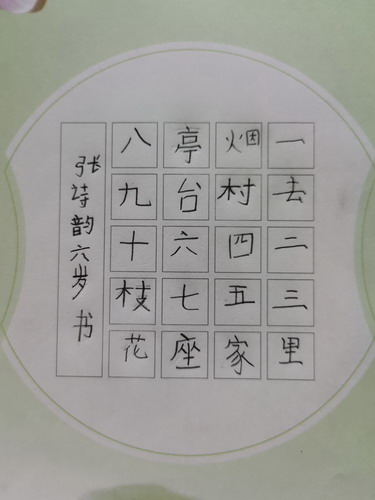 一去二三里
烟村四五家
亭台六七座
八九十枝花
张诗韵六岁书